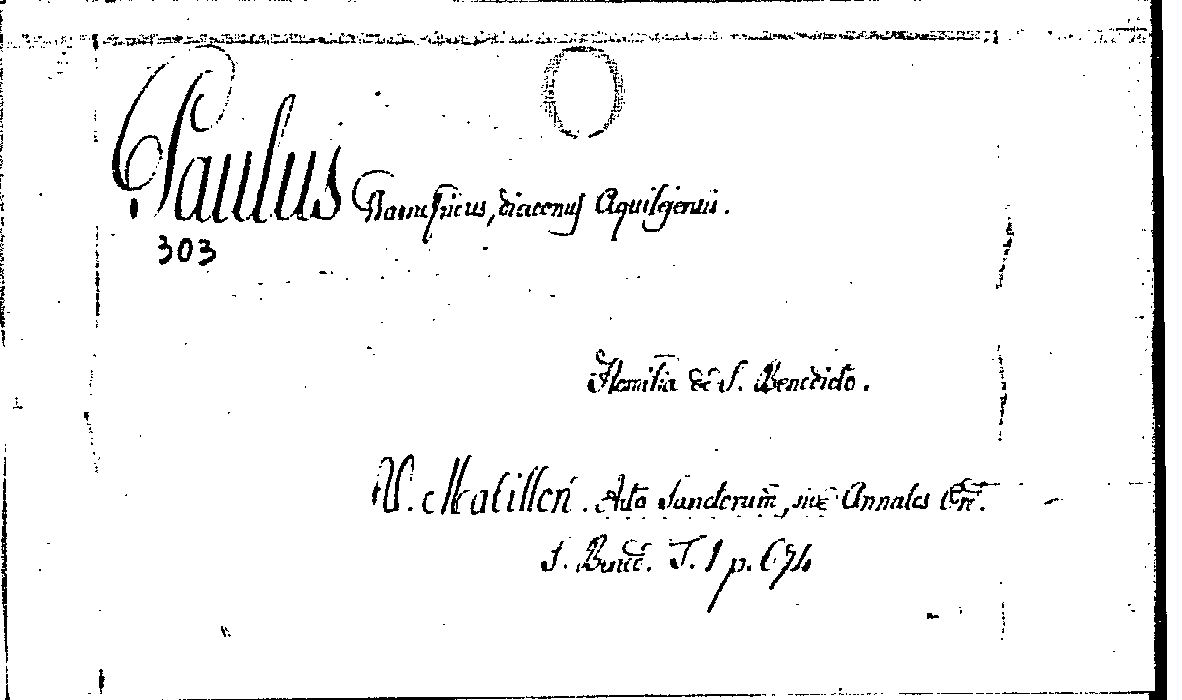 Paulus Warnefricus, diaconus Aquilejensis.
303
Homilia de S. Benedicto.
V. Mabillon. Acta Sanctorum, sive Annales Ord.
S. Bened. T. I p. 674